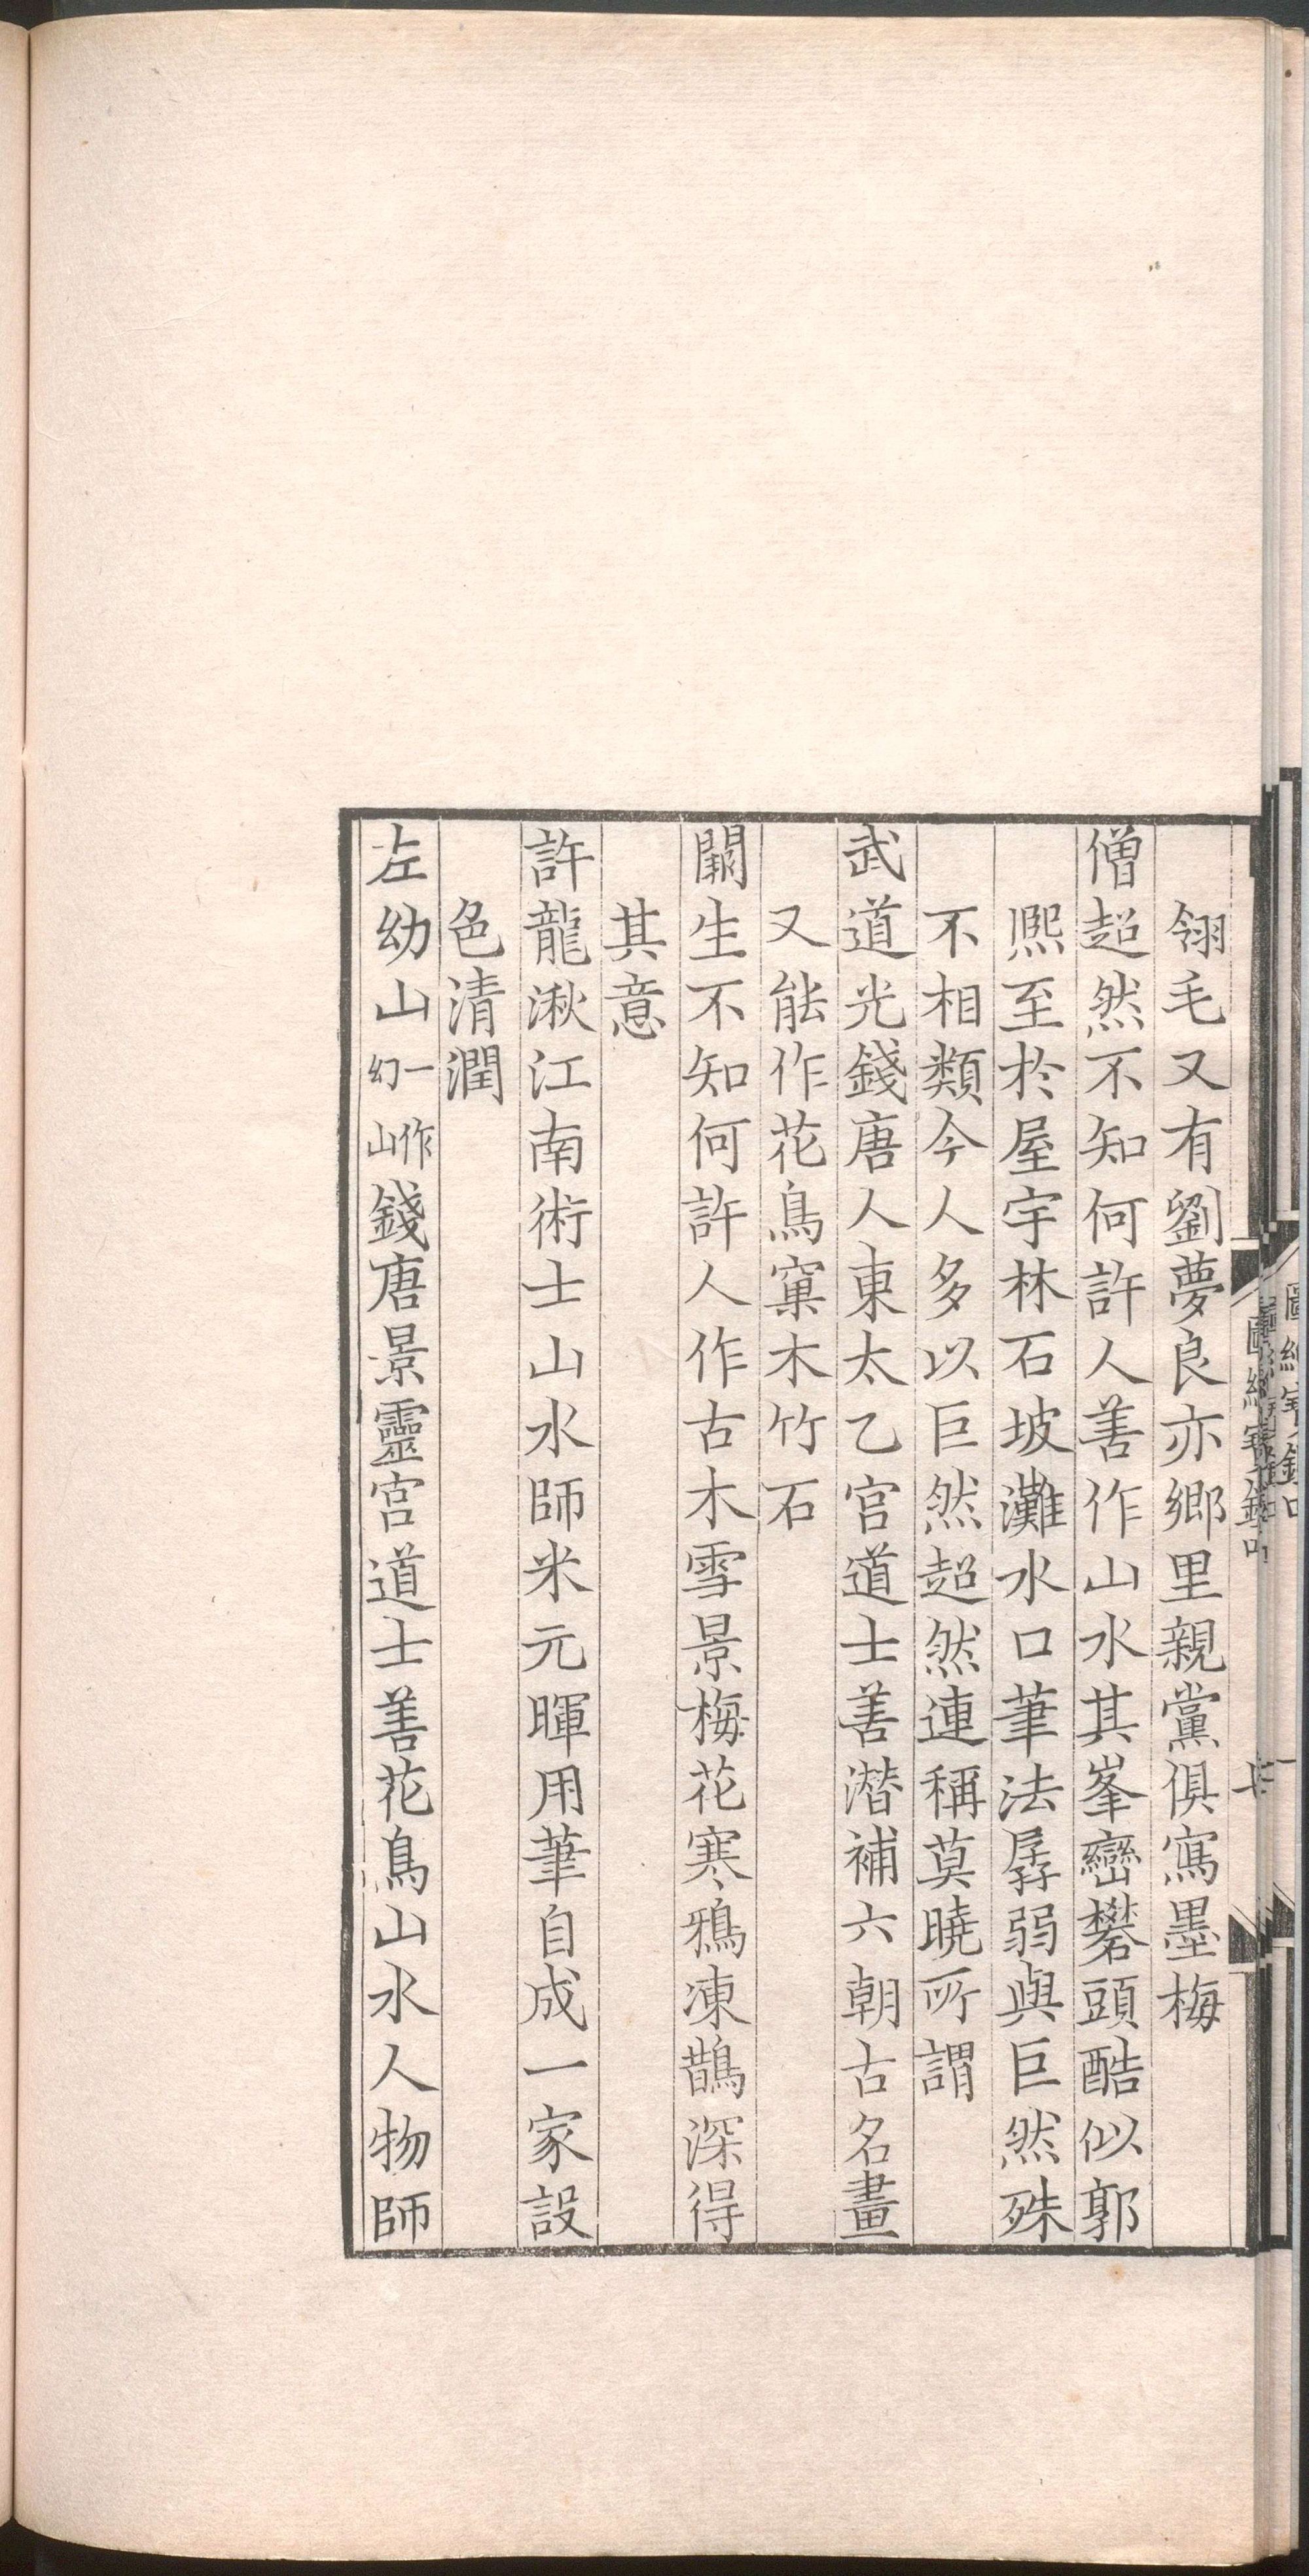 翎毛又有劉夢良亦鄉里親黨俱寫墨梅
僧超然不知何許人善作山水其峯巒礬頭酷似郭
熈至於屋宇林石坡灘水口筆法孱弱與巨然殊
不相類今人多以巨然超然連稱莫曉所謂
武道光錢唐人東太乙宫道士善潛補六朝古名畫
又能作花鳥窠木竹石
闞生不知何許人作古木雪景梅花寒鴉凍鵲深得
其意
許龍湫江南術士山水師米元暉用筆自成一家設
色清潤
左幼山一作幻山錢唐景靈宫道士善花鳥山水人物師